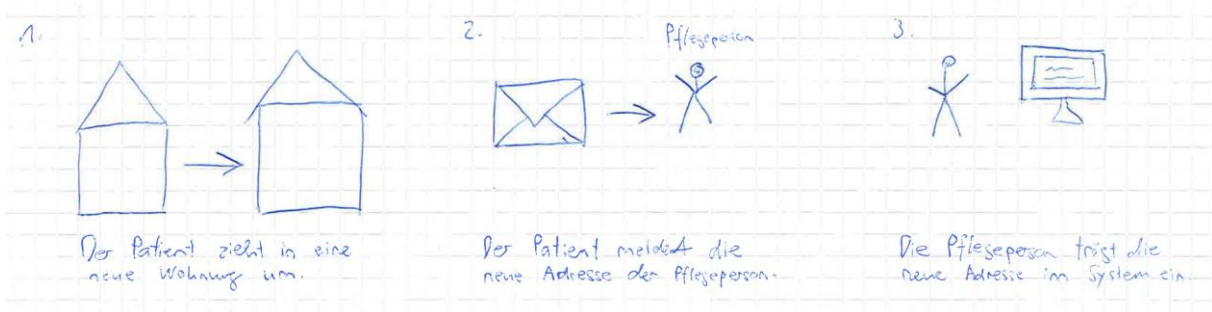 1.
Der Patient zieht in eine
neue Wohnung um.
2.
Pflegeperson
Der Patient meldet die
neue Adresse der Pflegeperson.
3.
Die Pflegeperson trägt die
neue Adresse im System ein.